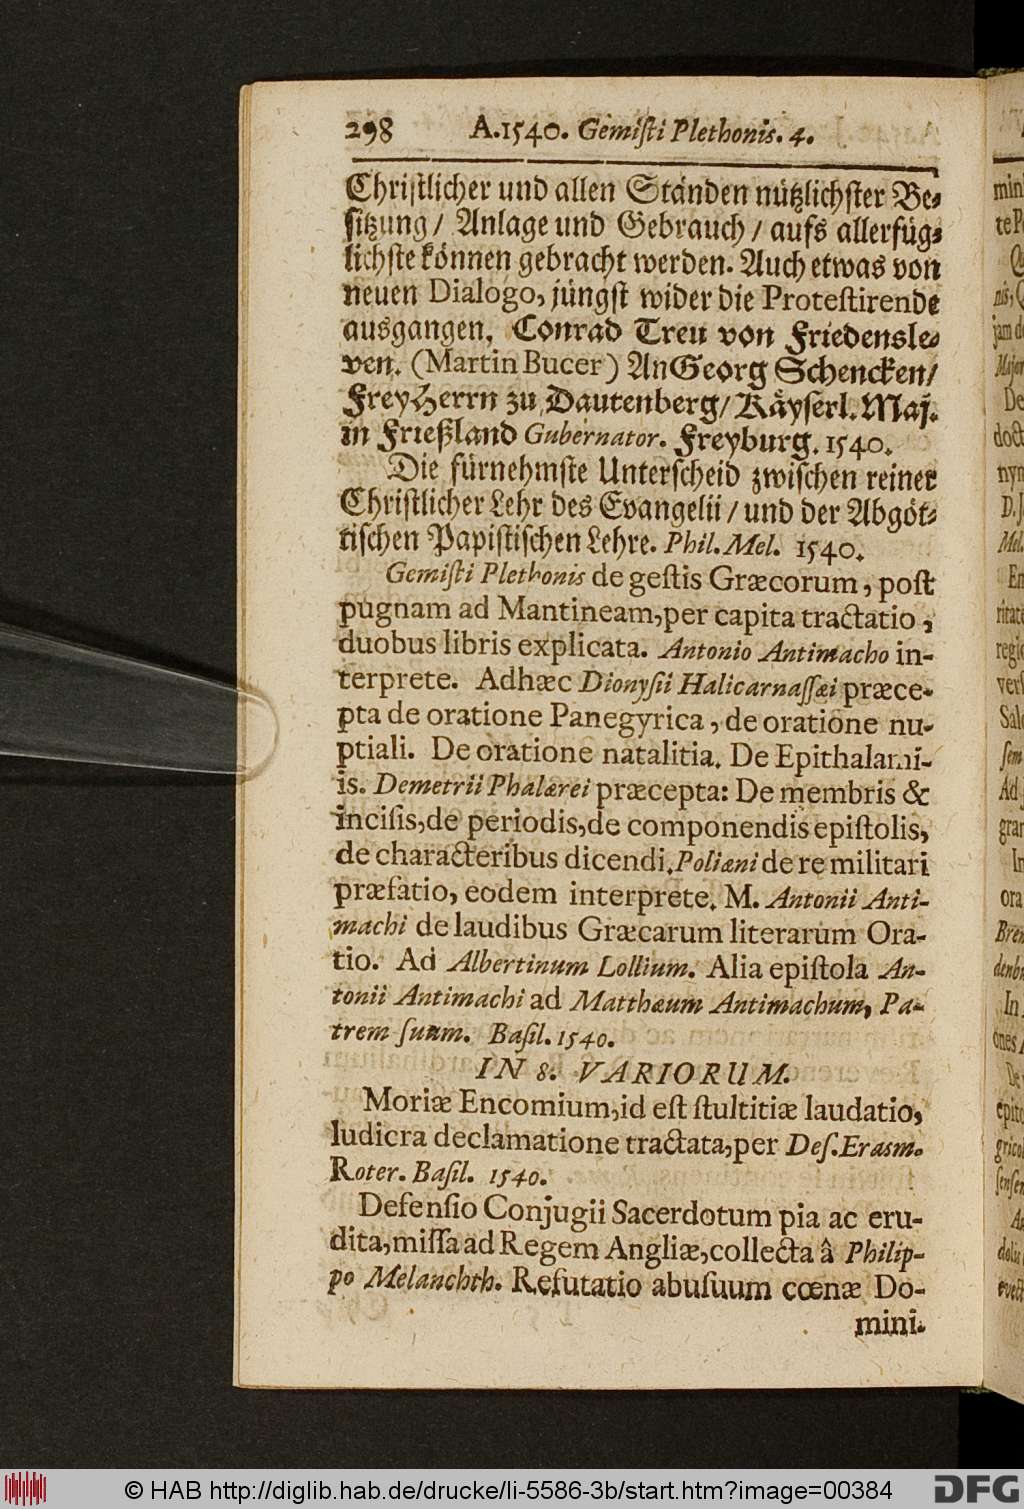 298 A.1540. Gemiſti Plethonis. 4.
Chriſtlicher und allen Ständen nützlichſter Be-
ſitzung / Anlage und Gebrauch / aufs allerfüg-
lichſte können gebracht werden. Auch etwas von
neuen Dialogo, jüngſt wider die Proteſtirende
ausgangen, Conrad Treu von Friedensle-
ven. (Martin Bucer) An Georg Schencken /
FreyHerrn zu Dautenberg / Käyſerl. Maj.
in Frießland Gubernator. Freyburg. 1540.
Die fürnehmſte Unterſcheid zwiſchen reiner
Chriſtlicher Lehr des Evangelii / und der Abgöt-
tiſchen Papiſtiſchen Lehre. Phil. Mel. 1540.
Gemiſti Plethonis de geſtis Græcorum, poſt
pugnam ad Mantineam, per capita tractatio,
duobus libris explicata. Antonio Antimacho in-
terprete. Adhæc Dionyſii Halicarnaſſæi præce-
pta de oratione Panegyrica, de oratione nu-
ptiali. De oratione natalitia. De Epithalami-
is. Demetrii Phalærei præcepta: De membris &
inciſis, de periodis, de componendis epiſtolis,
de characteribus dicendi. Poliæni de re militari
præfatio, eodem interprete. M. Antonii Anti-
machi de laudibus Græcarum literarum Ora-
tio. Ad Albertinum Lollium. Alia epiſtola An-
tonii Antimachi ad Matthæum Antimachum, Pa-
trem ſuum. Baſil. 1540.
IN 8. VARIORUM.
Moriæ Encomium, id eſt ſtultitiæ laudatio,
ludicra declamatione tractata, per Deſ. Erasm.
Roter. Baſil. 1540.
Defenſio Conjugii Sacerdotum pia ac eru-
dita, miſſa ad Regem Angliæ, collecta â Philip-
po Melanchth. Refutatio abuſuum cœnæ Do-
mini.
© HAB http://diglib.hab.de/drucke/li-5586-3b/start.htm?image=00384
DFG